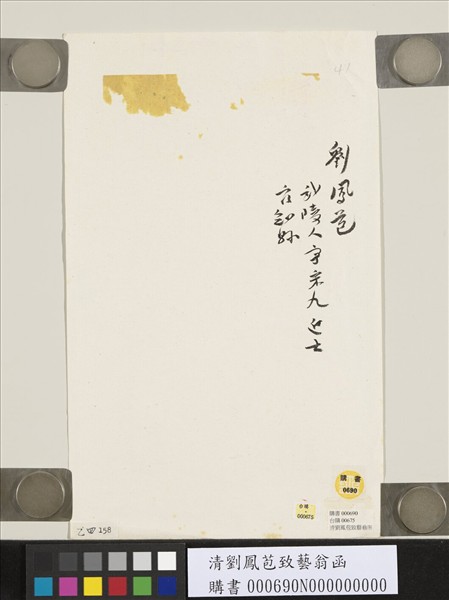 劉鳳苞
武陵人字采九進士
官知縣
購書
0690
000675
購書 000690
台購 00675
清劉鳳苞致藝翁函
158
清劉鳳苞致藝翁函
購書 000690N000000000